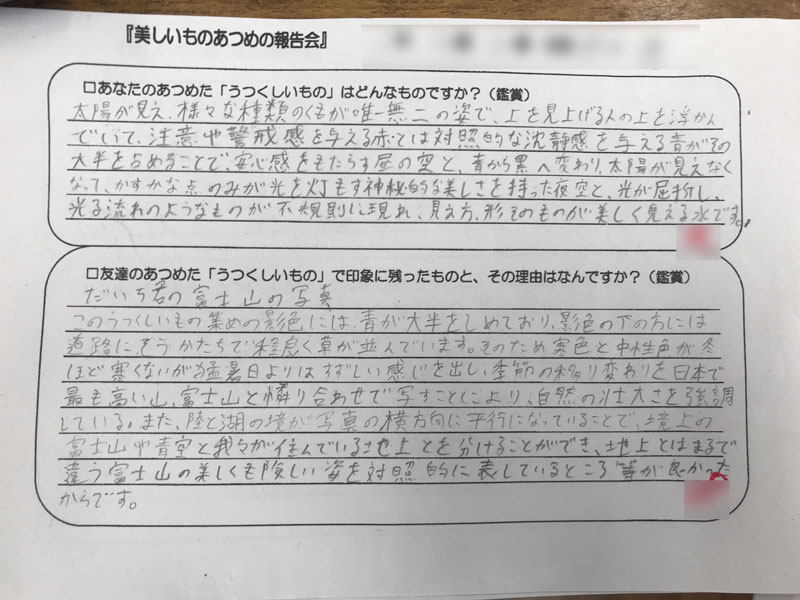 『美しいものあつめの報告会』
□あなたのあつめた「うつくしいもの」はどんなものですか？（鑑賞）
太陽が見え、様々な種類のくもが唯一無二の姿で、上を見上げる人の上を浮かん
でいて、注意や警戒感を与える赤とは対照的な沈静感を与える青がその
大半を占めることで、安心感をもたらす昼の空と、青から黒へ変わり、太陽が見えなく
なって、かすかな点のみが光を灯もす神秘的な美しさを持った夜空と、光が屈折し、
光る流れのようなものが不規則に現れ、見え方、形そのものが美しく見える水です。
□友達のあつめた「うつくしいもの」で印象に残ったものと、その理由はなんですか？（鑑賞）
だいち君の富士山の写真
このうつくしいもの集めの景色には、青が大半をしめており、景色の下の方には
道路にそうかたちで程良く草が並んでいます。そのため寒色と中性色が冬
ほど寒くないが猛暑日よりはすずしい感じを出し、季節の移り変わりを日本で
最も高い山、富士山と隣り合わせで写すことにより、自然の壮大さを強調
している。また、陸と湖の境が写真の横方向に平行になっていることで、境上の
富士山や青空と我々が住んでいる地上とを分けることができ、地上とはまるで
違う富士山の美しくも険しい姿を対照的に表しているところ等が良かった
からです。